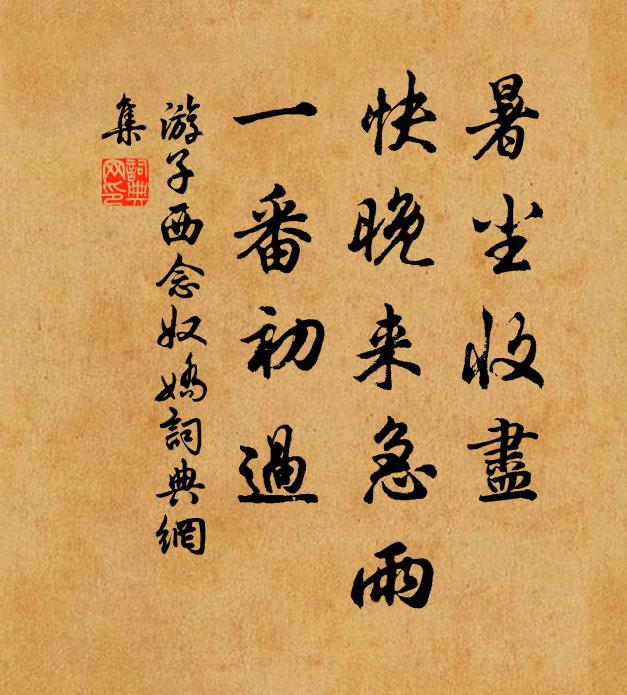 暑尘收盡
快晚来急雨
一番初過
游子西念奴嬌詞典網
集
詞典
网印